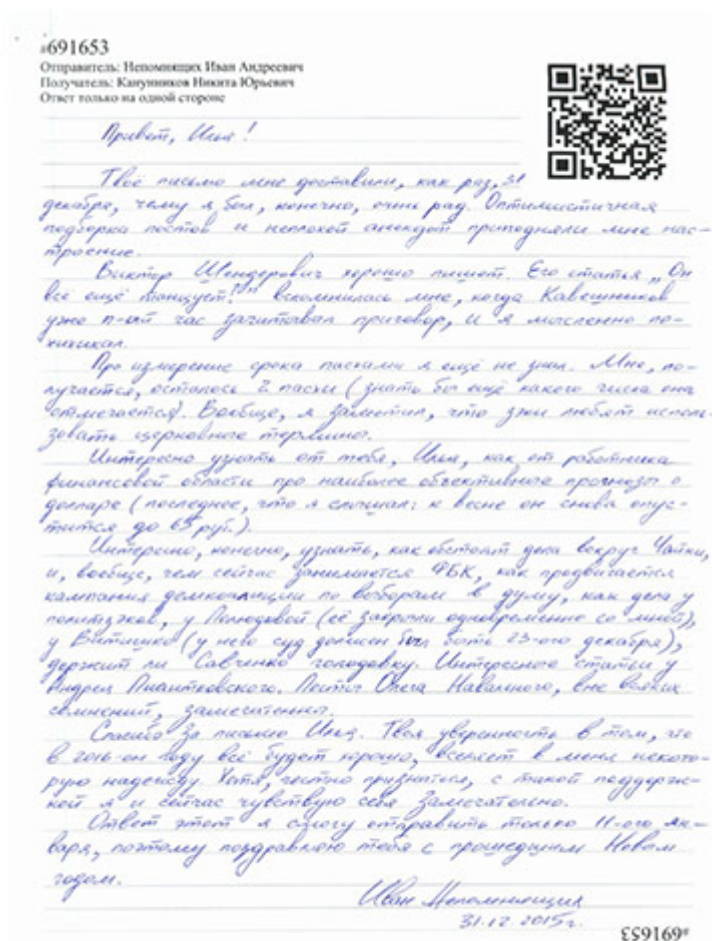 #691653
Отправитель: Непомнящих Иван Андреевич
Получатель: Канунников Никита Юрьевич
Ответ только на одной стороне
Привет, Илья!
Твоё письмо мне доставили, как раз, 31
декабря, чему я был, конечно, очень рад. Оптимистичная
подборка постов и неплохой анекдот приподняли мне нас-
троение.
Виктор Шендерович хорошо пишет. Его статья „Он
всё ещё танцует?" вспомнилась мне, когда Кавешников
уже n-ый час зачитывал приговор, и я мысленно по-
хихикал.
Про измерение срока пасхами я ещё не знал. Мне, по-
лучается, осталось 2 пасхи (знать бы ещё какого числа она
отмечается). Вообще, я заметил, что зэки любят исполь-
зовать церковные термины.
Интересно узнать от тебя, Илья, как от работника
финансовой области про наиболее объективные прогнозы о
долларе (последнее, что я слышал: к весне он снова опус-
тится до 65 руб.).
Интересно, конечно, узнать, как обстоят дела вокруг Чайки,
и, вообще, чем сейчас занимается ФБК, как продвигается
кампания демкоалиции по выборам в думу, как дела у
политзэков, у Полюдовой (её закрыли одновременно со мной),
у Витишко (у него суд должен был быть 23-ого декабря),
держит ли Савченко голодовку. Интересные статьи у
Андрея Пионтковского. Посты Олега Навального, вне всяких
сомнений, замечательны.
Спасибо за письмо Илья. Твоя уверенность в том, что
в 2016-ом году всё будет хорошо, вселяет в меня некото-
рую надежду. Хотя, честно признаться, с такой поддерж-
кой я и сейчас чувствую себя замечательно.
Ответ этот я смогу отправить только 11-ого ян-
варя, поэтому поздравляю тебя с прошедшим Новым
годом.
Иван Непомнящих
31.12.2015г.
#691653